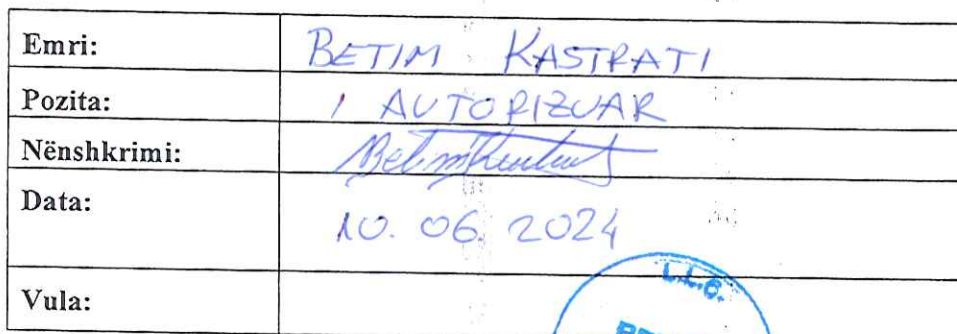 Emri: BETIM KASTRATI
Pozita: I AUTORIZUAR
Nënshkrimi:
Data: 10.06.2024
Vula: